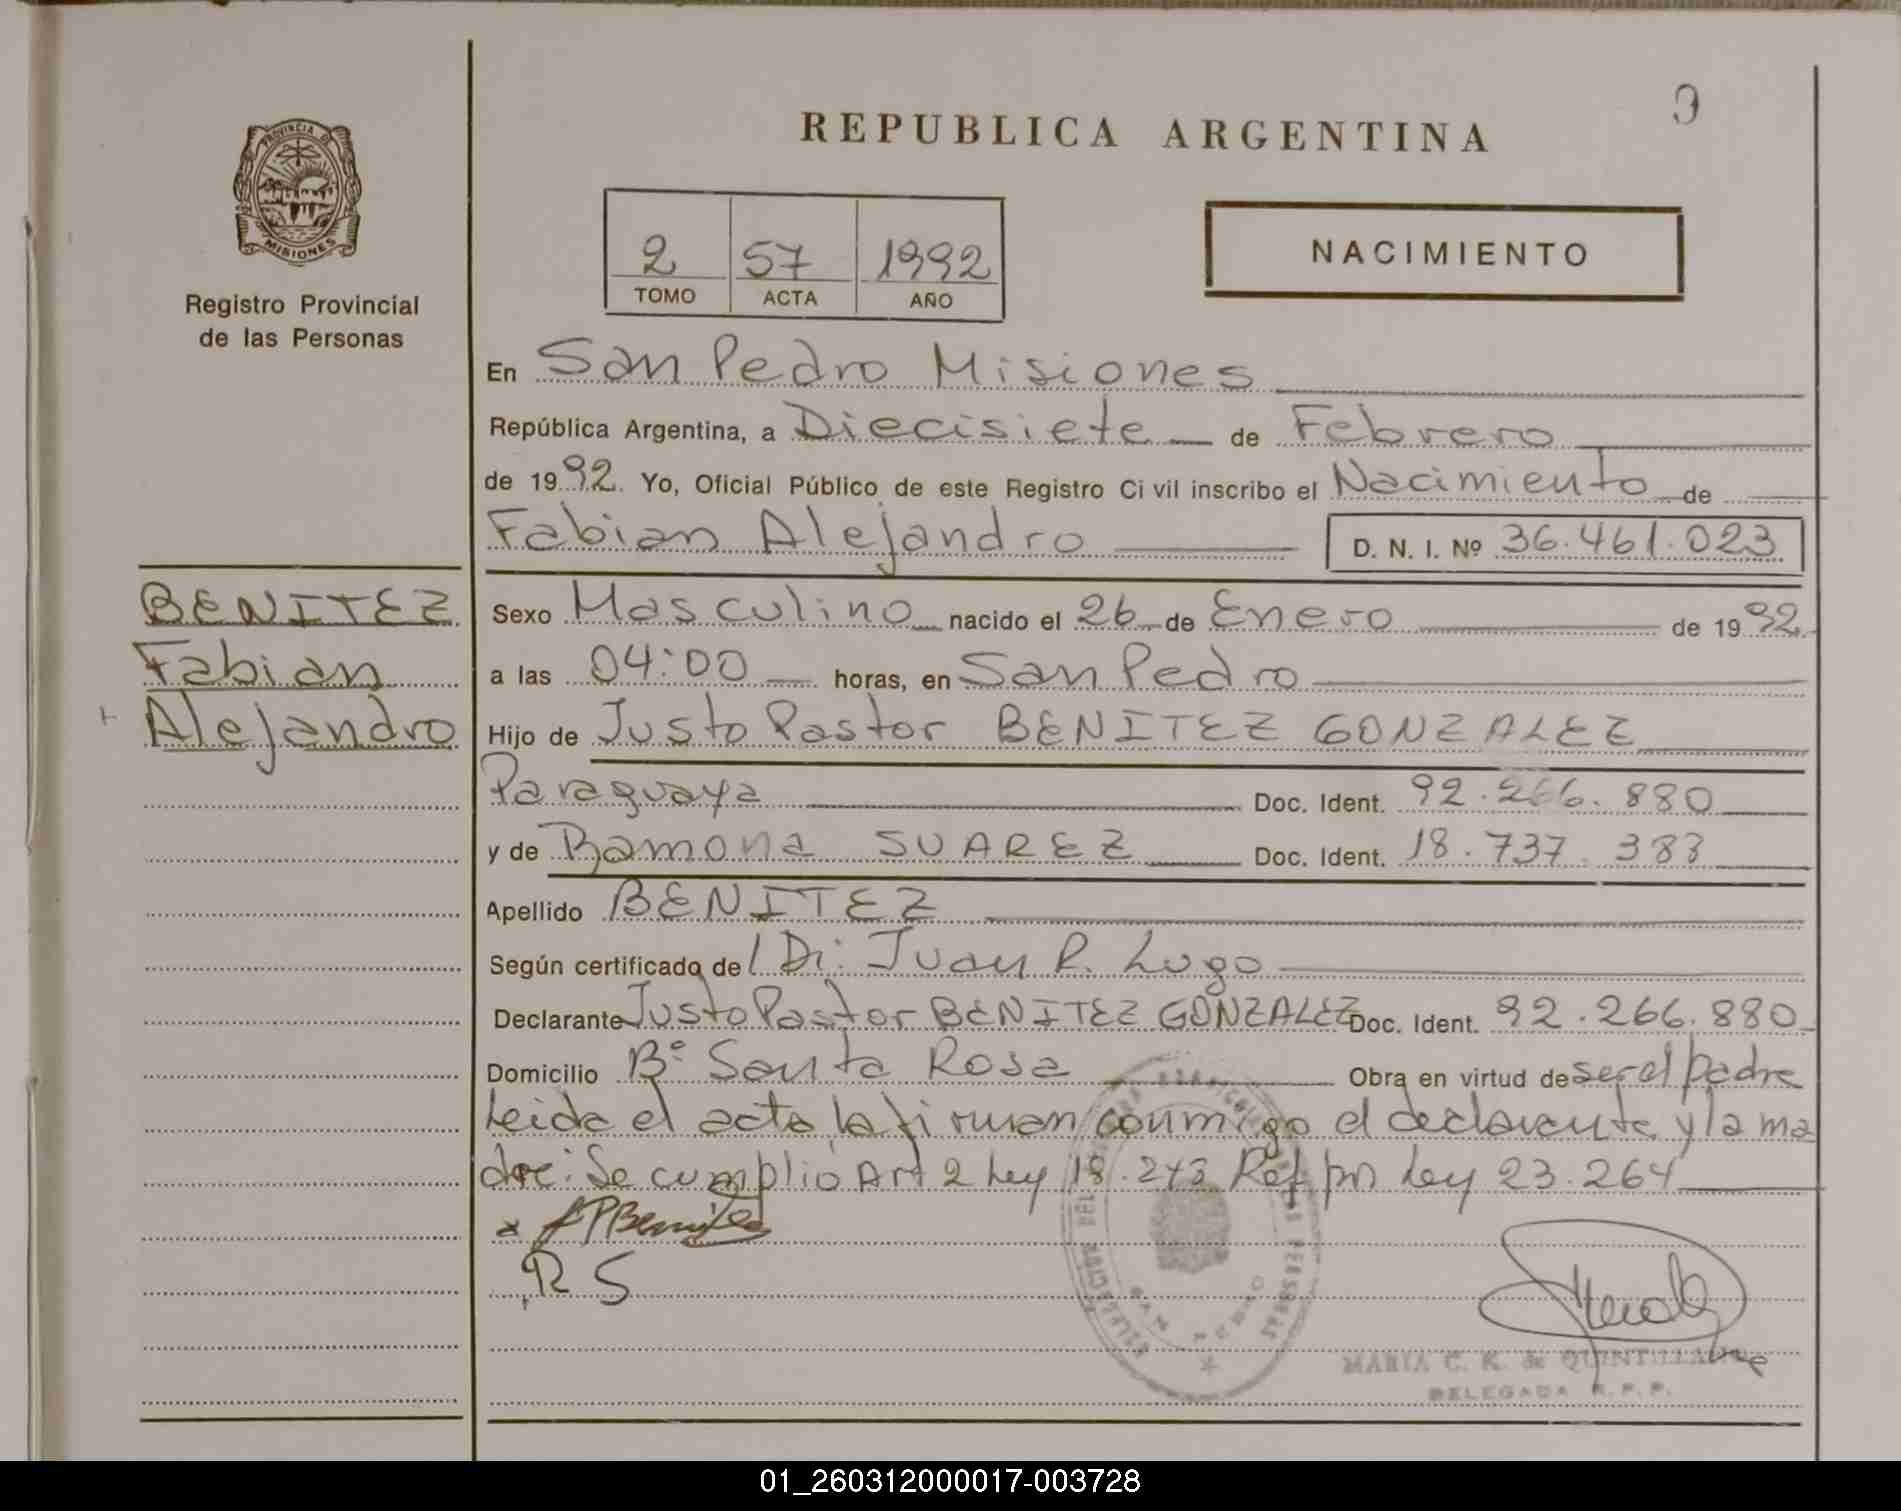 9
REPUBLICA ARGENTINA
PROVINCIA D
MISIONES
Registro Provincial
de las Personas
2 57 1992
TOMO ACTA AÑO
NACIMIENTO
En San Pedro Misiones
República Argentina, a Diecisiete de Febrero
de 1992. Yo, Oficial Público de este Registro Civil inscribo el Nacimiento de
Fabian Alejandro D. N. I. Nº 36.461.023
BENITEZ
Fabian
Alejandro
Sexo Masculino nacido el 26 de Enero de 1992
a las 04:00 horas, en San Pedro
Hijo de Justo Pastor BENITEZ GONZALEZ
Paraguaya Doc. Ident. 92.266.880
y de Ramona SUAREZ Doc. Ident. 18.737.383
Apellido BENITEZ
Según certificado de Dr: Juan R. Lugo
Declarante Justo Pastor BENITEZ GONZALEZ Doc. Ident. 92.266.880
Domicilio Bº Santa Rosa Obra en virtud de ser el padre
Leida el acta la firman conmigo el declarante y la ma
dre: Se cumplio Art 2 Ley 18.243 Ref por Ley 23.264
JPBenitez
R S
SAN PEDRO
MARIA C. K. de QUINTILLAN
DELEGADA R.P.P.
01_260312000017-003728